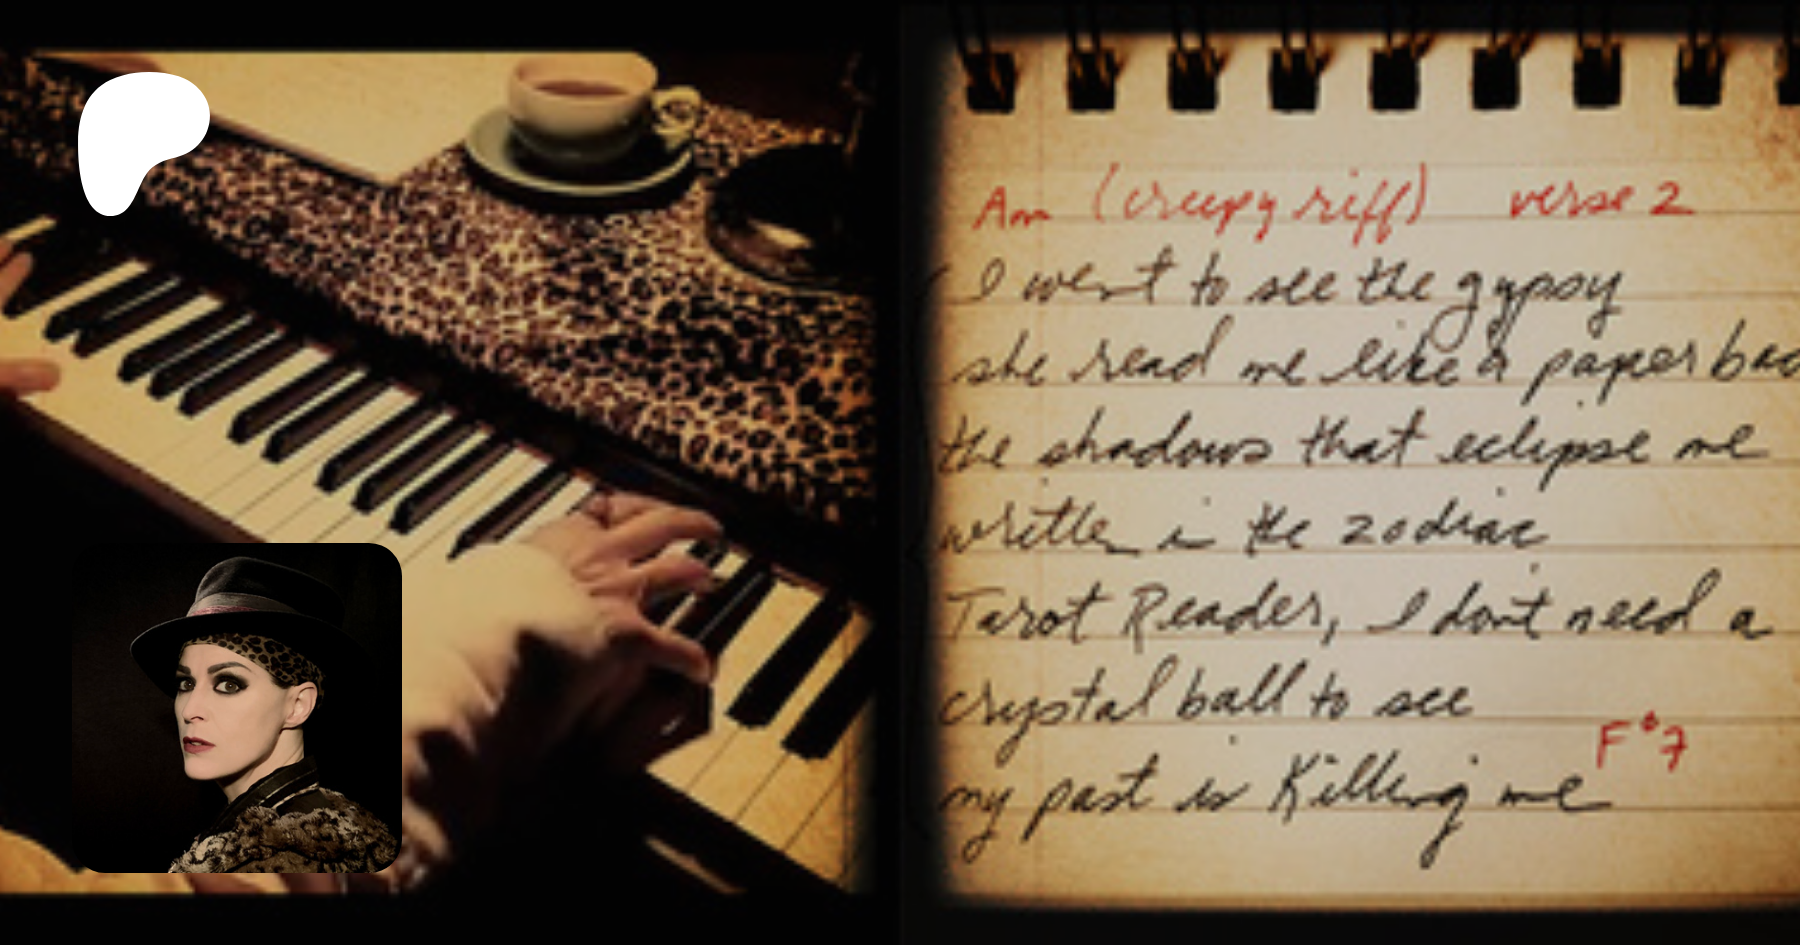 Am (creepy riff) verse 2
I went to see the gypsy
she read me like a paper bac
the shadows that eclipse me
written in the zodiac
Tarot Reader, I don't need a
crystal ball to see
F#7
my past is Killing me